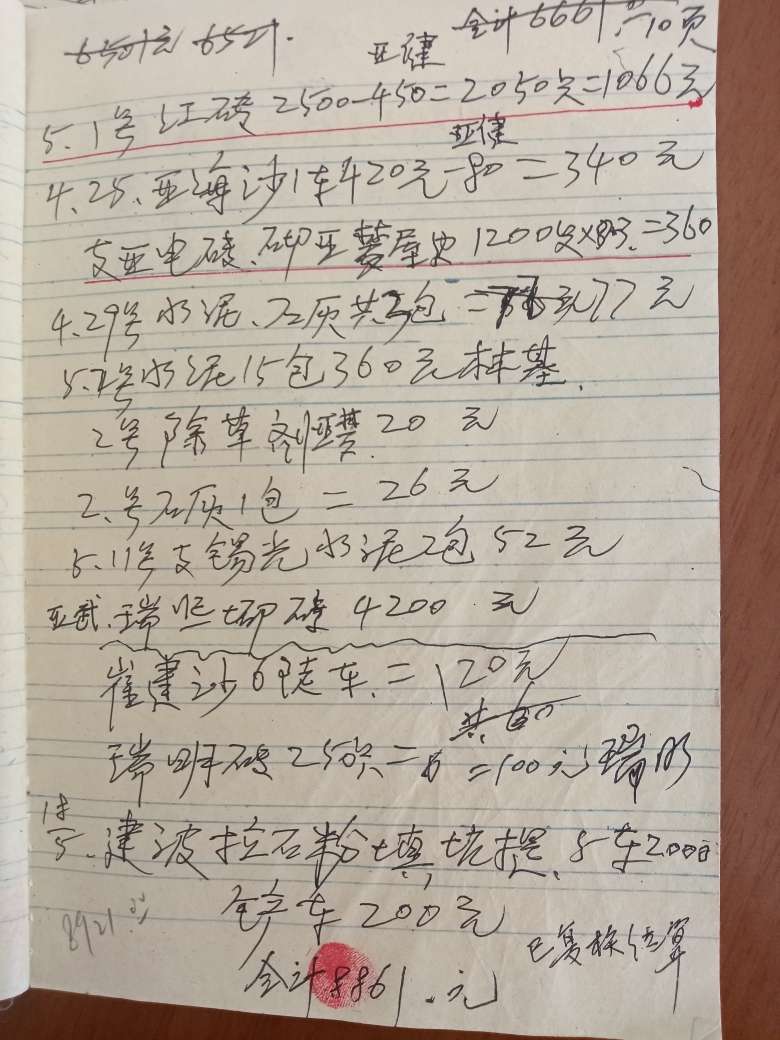 6501元 6521. 合计6661元 10页
亚健
5.1号红砖2500-450=2050只=1066元
亚健
4.25.亚海沙1车420元-80=340元
支亚电砖、砌亚 屋 1200只 =360
4.29号水泥、石灰共3包= 77元
5.2号水泥15包360元林基.
2号除草剂 20元
2.号石灰1包=26元
5.11号支锡光水泥2包52元
亚武.瑞 砖4200元
崔建沙6 车.=120元
共60
瑞明砖250只= =100元瑞明
18/5.建波拉石粉填坑提、5车2000
铲车200元
8921元 已复核结算
合计8861.元